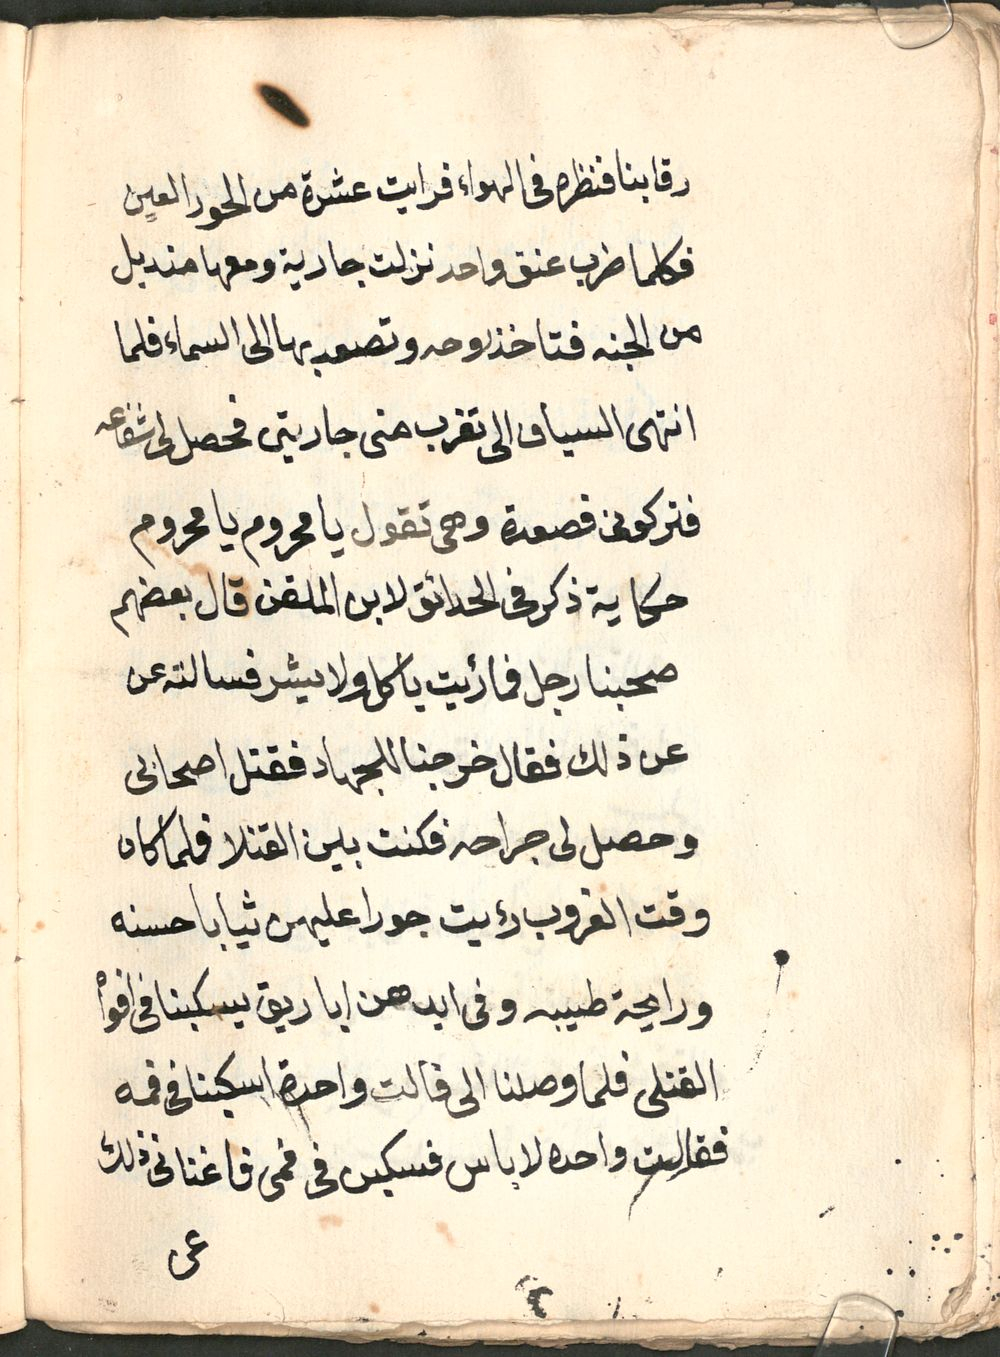 رقابنا فنظره فى الهواء فرايت عشرة من الحور العين
فكلما ضرب عنق واحد نزلت جارية ومعها منديل
من الجنه فتاخذ روحه وتصعد بها الى السماء فلما
انتهى السياف الى تقرب منى جاريتى فحصل لى شفاعه
فتركونى فصعدة وهى تقول يا محروم يا محروم
حكاية ذكر فى الحدائق لابن الملقن قال بعضهم
صحبنا رجل فما رئيت ياكل ولا يشر فسالته عن
عن ذلك فقال خرجنا للجهاد فقتل اصحابى
وحصل لى جراحه فكنت بين القتلا فلما كان
وقت الغروب رءيت حورا عليهن ثيابا حسنه
ورايحة طيبه وفى ايدهن اباريق يسكبنا فى افواْ
القتلى فلما وصلنا الى قالت واحدة اسكبنا فى فمه
فقالت واحده لا باس فسكبن فى فمى فاغنانى ذلك
عن